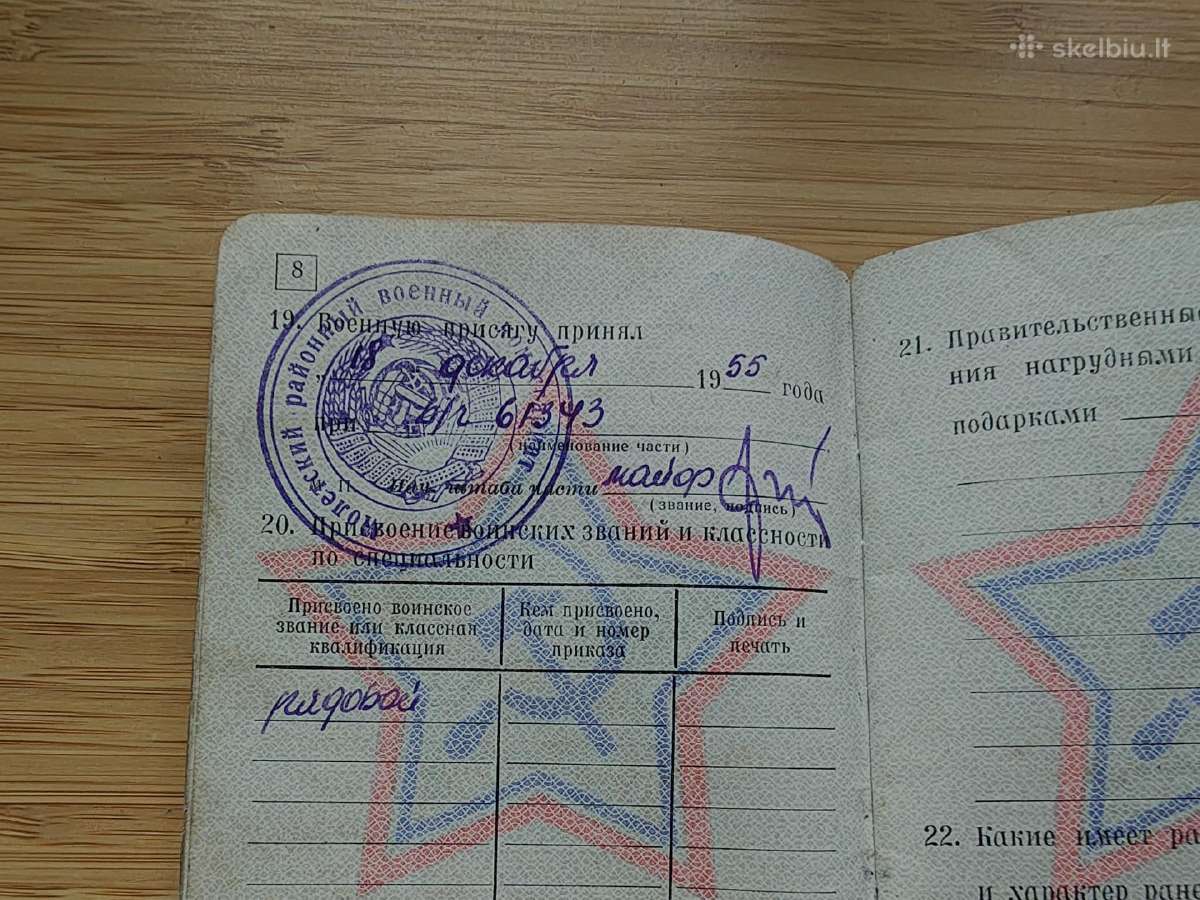 skelbiu.lt
8
Молетский районный военный
19. Военную присягу принял
18 декабря 1955 года
при в/ч 61343
(наименование части)
М. П. Нач. штаба части майор
(звание, подпись)
20. Присвоение воинских званий и классности
по специальности
Присвоено воинское
звание или классная
квалификация
Кем присвоено,
дата и номер
приказа
Подпись и
печать
рядовой
21. Правительственны
ния нагрудными
подарками
22. Какие имеет ра
и характер ране